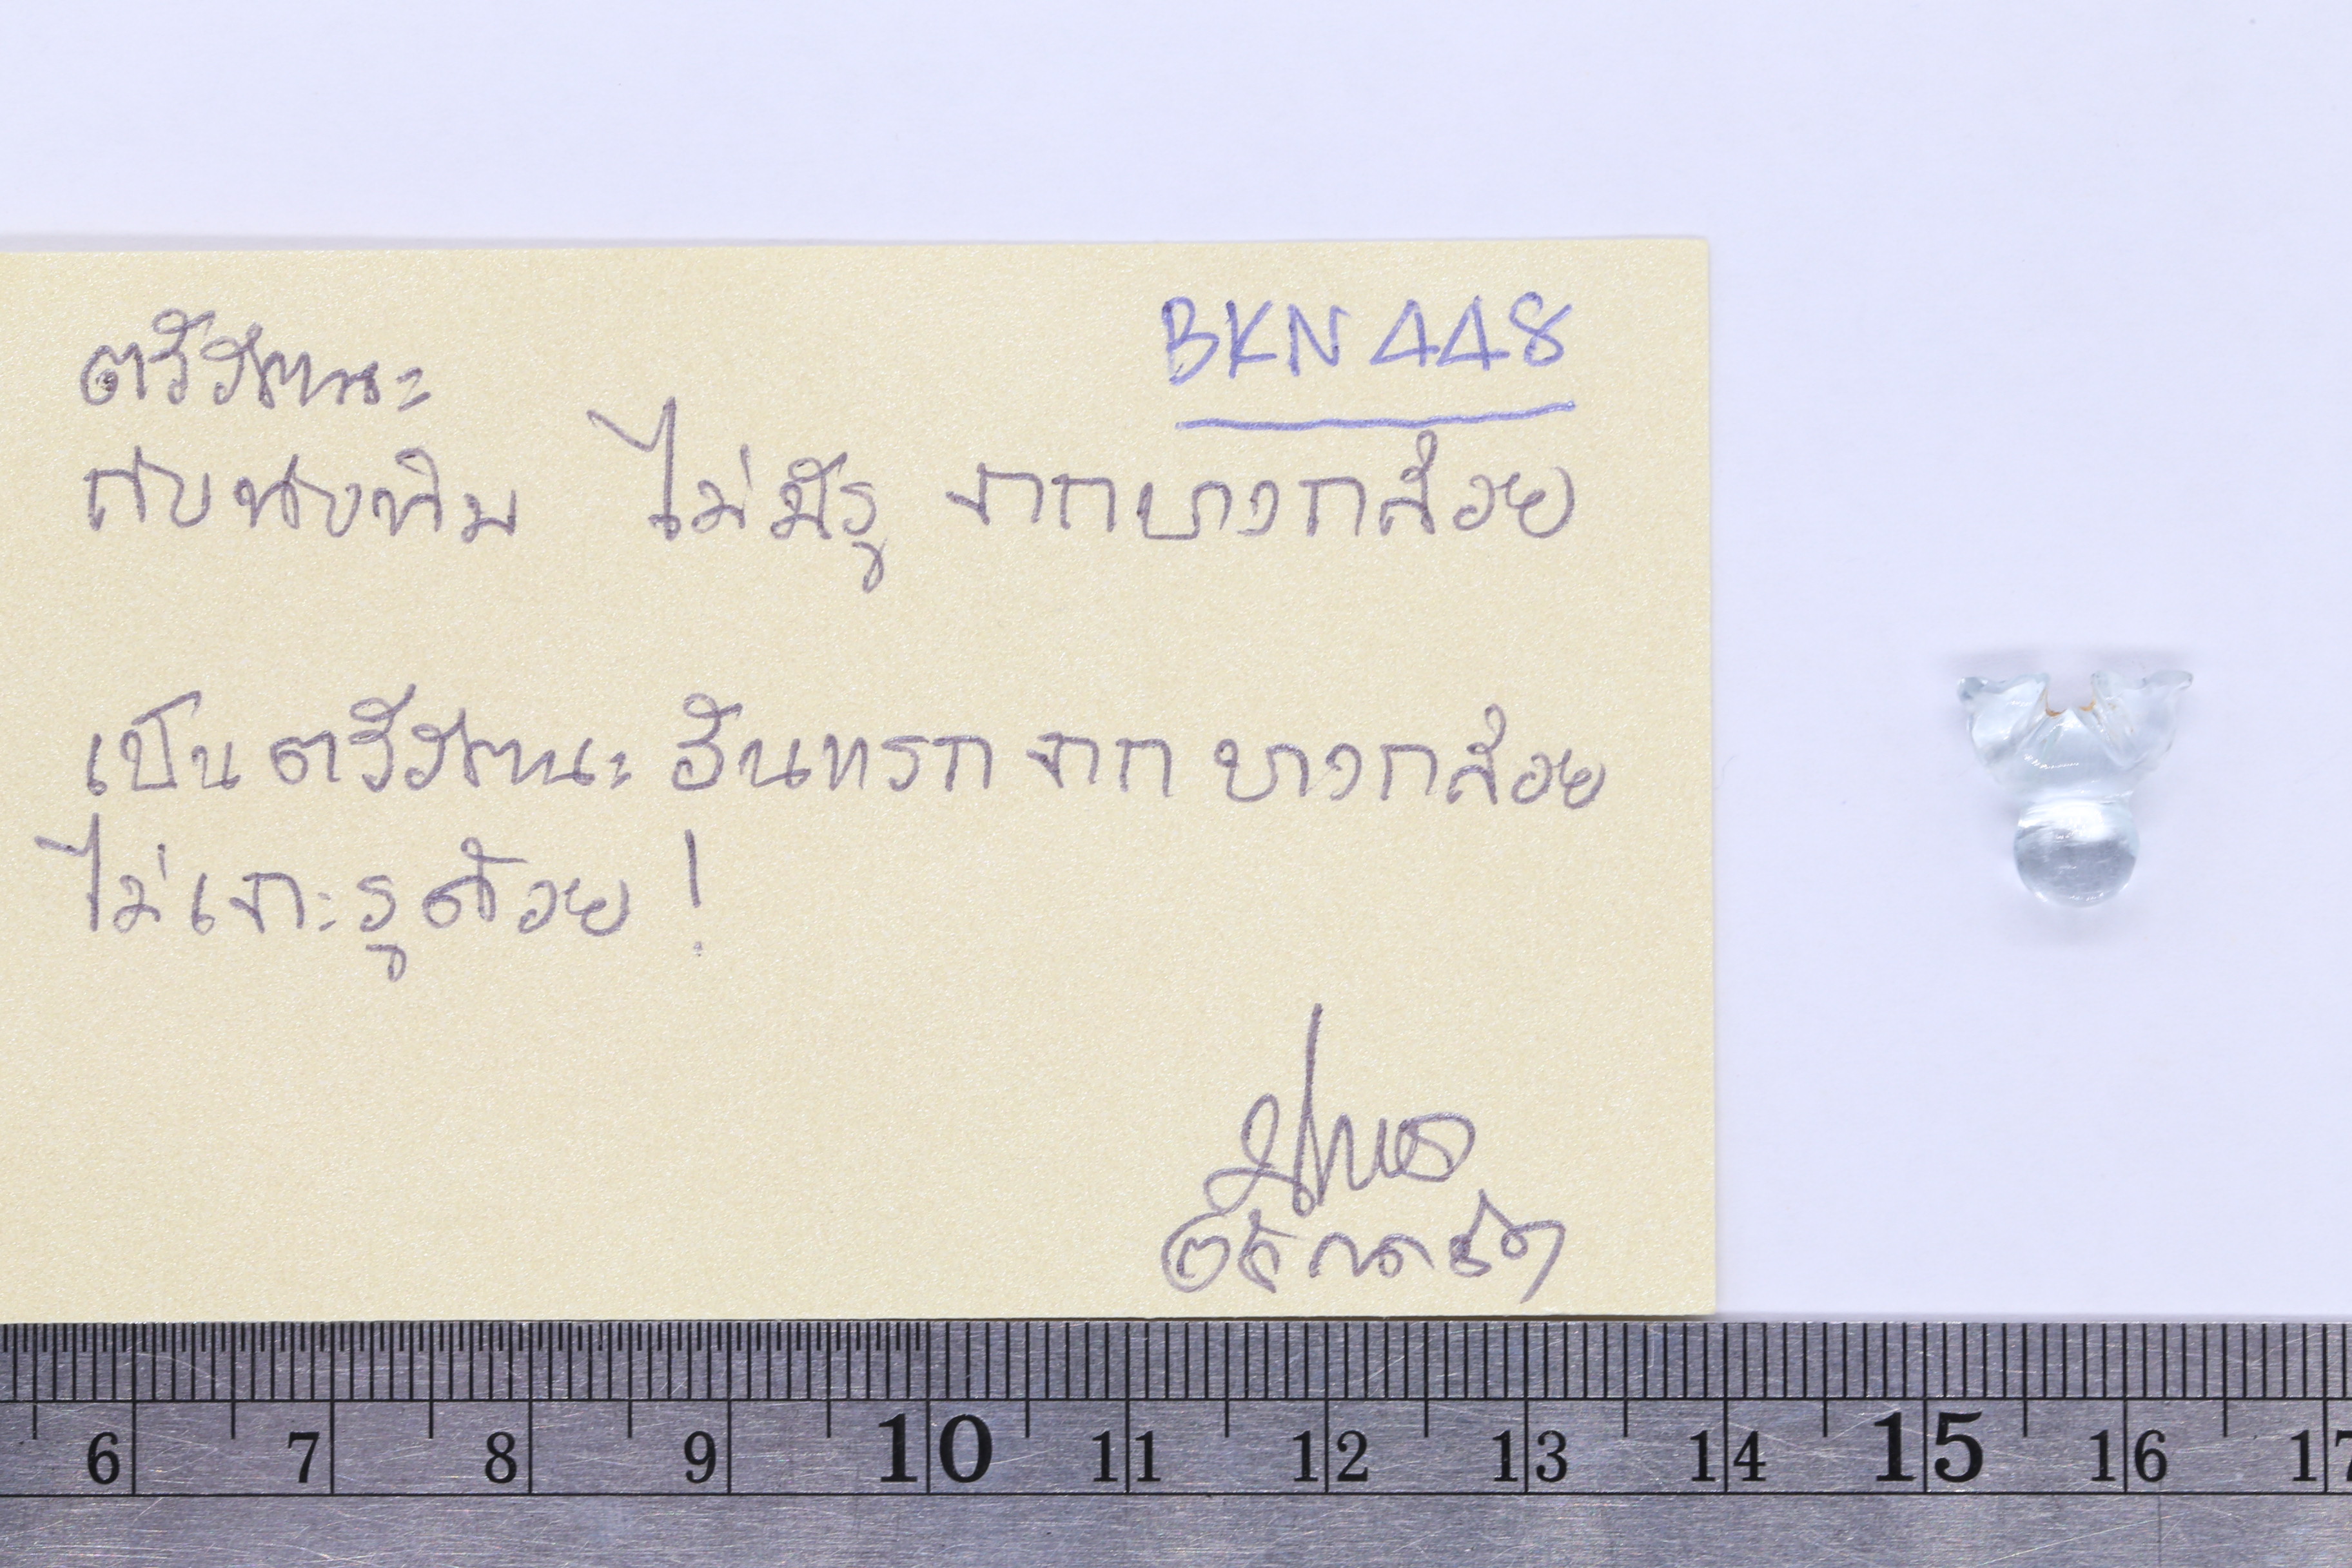 BKN 448
ตรีรัตนะ
ไม่มีรู จากบางกล้วย
เป็นตรีรัตนะอันแรกจากบางกล้วย
ไม่เจาะรูด้วย!
6 7 8 9 10 11 12 13 14 15 16 17